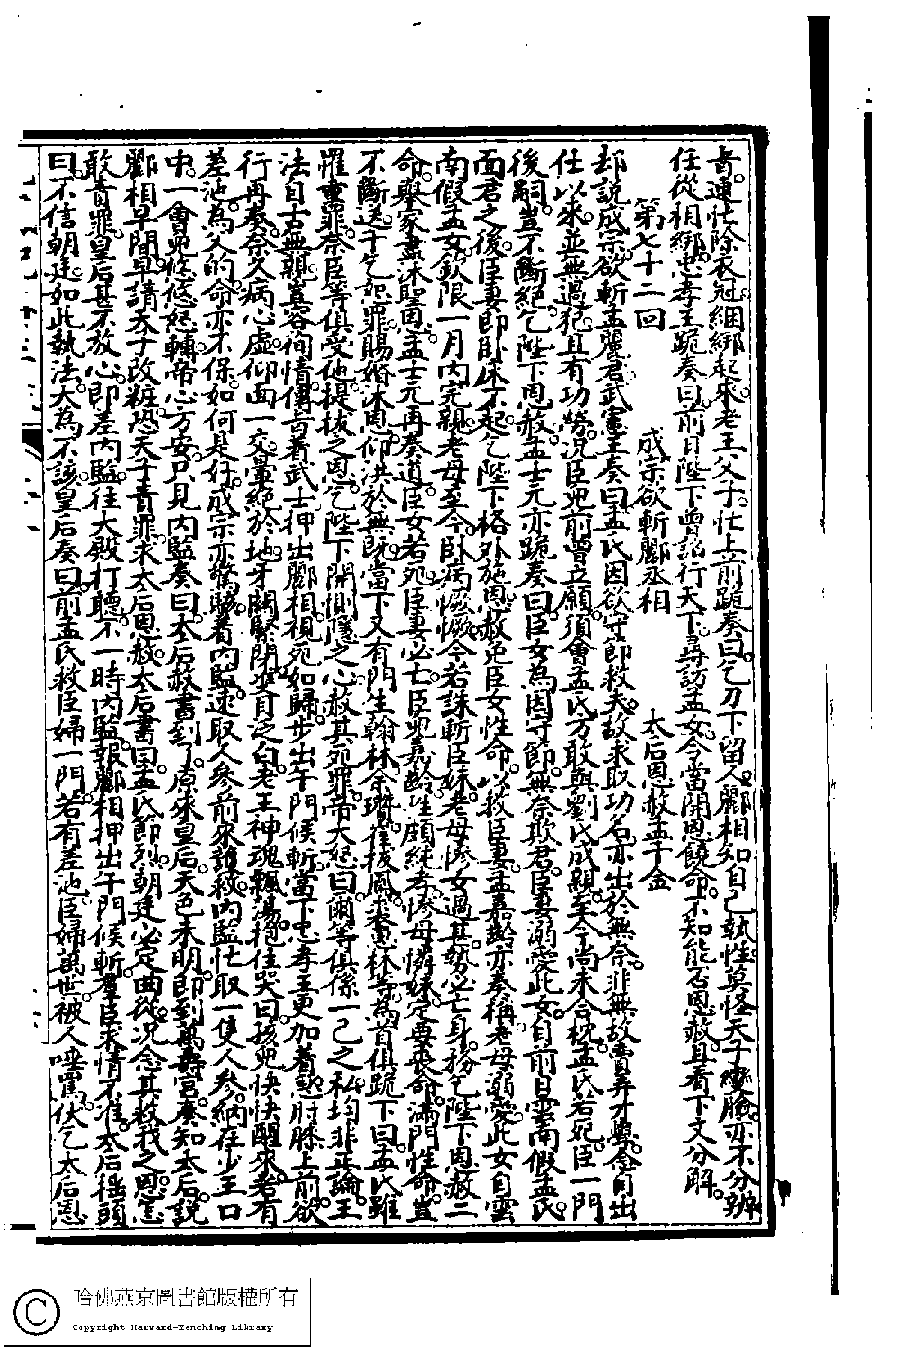 者連忙除衣冠綑綁起來老王父子忙上前跪奏曰乞刀下留人酈相知自己執性莫怪天子變臉亦不分辨
任從相綁忠孝王跪奏曰前日陛下曾詔行天下尋訪孟女今當開恩饒命不知能否恩赦且看下文分解
第七十二回 成宗欲斬酈丞相 太后恩赦孟千金
却說成宗欲斬孟麗君武憲王奏曰孟氏因欲守節救夫故求取功名亦出於無奈非無故賣弄才學念自出
任以來並無過犯且有功勞況臣兒前曾立願須會孟氏方敢與劉氏成親至今尚未合枕孟氏若犯臣一門
後嗣豈不斷絕乞陛下恩赦孟士元亦跪奏曰臣女為因守節無奈欺君臣妻溺愛此女自前日雲南假孟氏
面君之後臣妻即臥床不起乞陛下格外施恩赦免臣女性命以救臣妻孟嘉齡亦奏稱老母溺愛此女自雲
南假孟女欽限一月內完親老母至今臥病懨懨今若誅斬臣妹老母慘女過甚勢必亡身務乞陛下恩赦二
命舉家盡沐聖恩孟士元再奏道臣女若死臣妻必亡臣兒嘉齡生頗純孝慘母憐妹定要喪命滿門性命豈
不斷送千乞恕罪賜婚沐恩仰洪於無既當下又有門生翰林余瓚崔扳鳳來惠林等為首俱跪下曰孟氏雖
罹重罪奈臣等俱受他提拔之恩乞陛下開惻隱之心赦其死罪帝大怒曰爾等俱係一己之私均非正論王
法自古無親豈容徇情傳旨着武士押出酈相視死如歸步出午門候斬當下忠孝王更加着怒肘膝上前欲
行再奏奈久病心虛仰面一交暈絕於地牙關緊閉雙目泛白老王神魂飄湯抱住哭曰孩兒快快醒來若有
差池為父的命亦不保如何是好成宗亦驚駭着內監速取人參前來護救內監忙取一隻人參納在少王口
中一會兒悠悠甦轉帝心方安只見內監奏曰太后赦書到了原來皇后天色未明即到萬壽宮奏知太后說
酈相早間早請天子改粧恐天子責罪求太后恩赦太后書曰孟氏節烈朝廷必定曲從況念其救我之恩豈
敢責罪皇后甚不放心即差內監往大殿打聽不一時內監報酈相押出午門候斬羣臣求情不准太后搖頭
曰不信朝廷如此執法大為不該皇后奏曰前孟氏救臣婦一門若有差池臣婦萬世被人唾罵伏乞太后恩
哈佛燕京圖書館版權所有
Copyright Harvard-Yenching Library